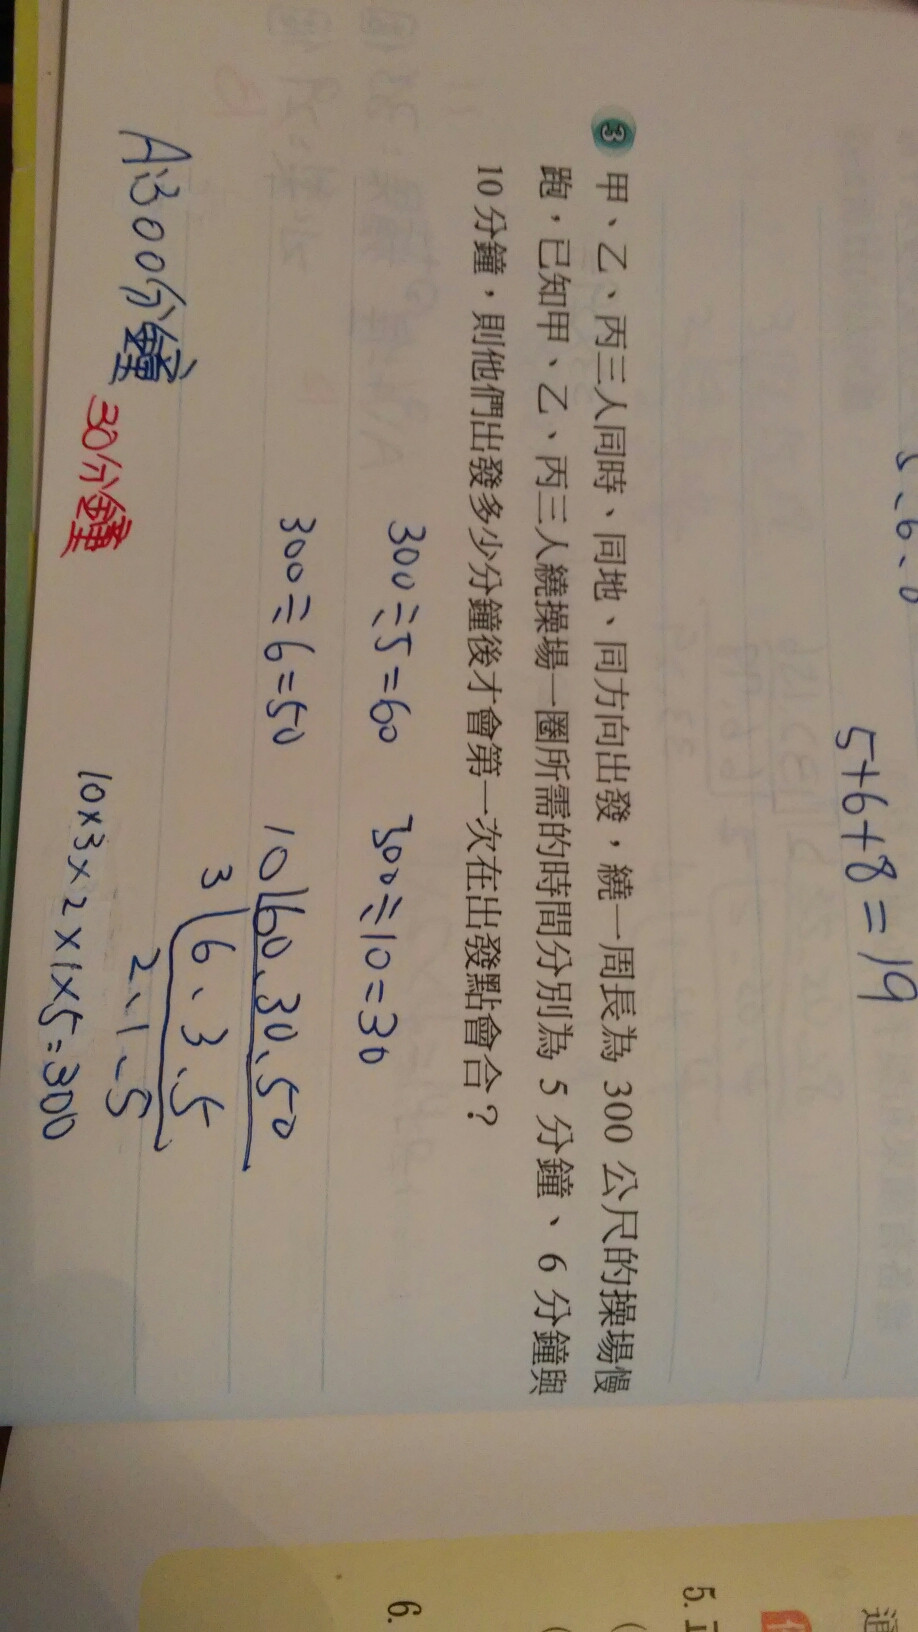 5+6+8=19
3 甲、乙、丙三人同時、同地、同方向出發，繞一周長為 300 公尺的操場慢
跑，已知甲、乙、丙三人繞操場一圈所需的時間分別為 5 分鐘、6 分鐘與
10 分鐘，則他們出發多少分鐘後才會第一次在出發點會合？
300÷5=60 300÷10=30
300÷6=50 10 60、30、50
3 6、3、5
2、1、5
A:300分鐘
30分鐘
10×3×2×1×5=300
5.
6.